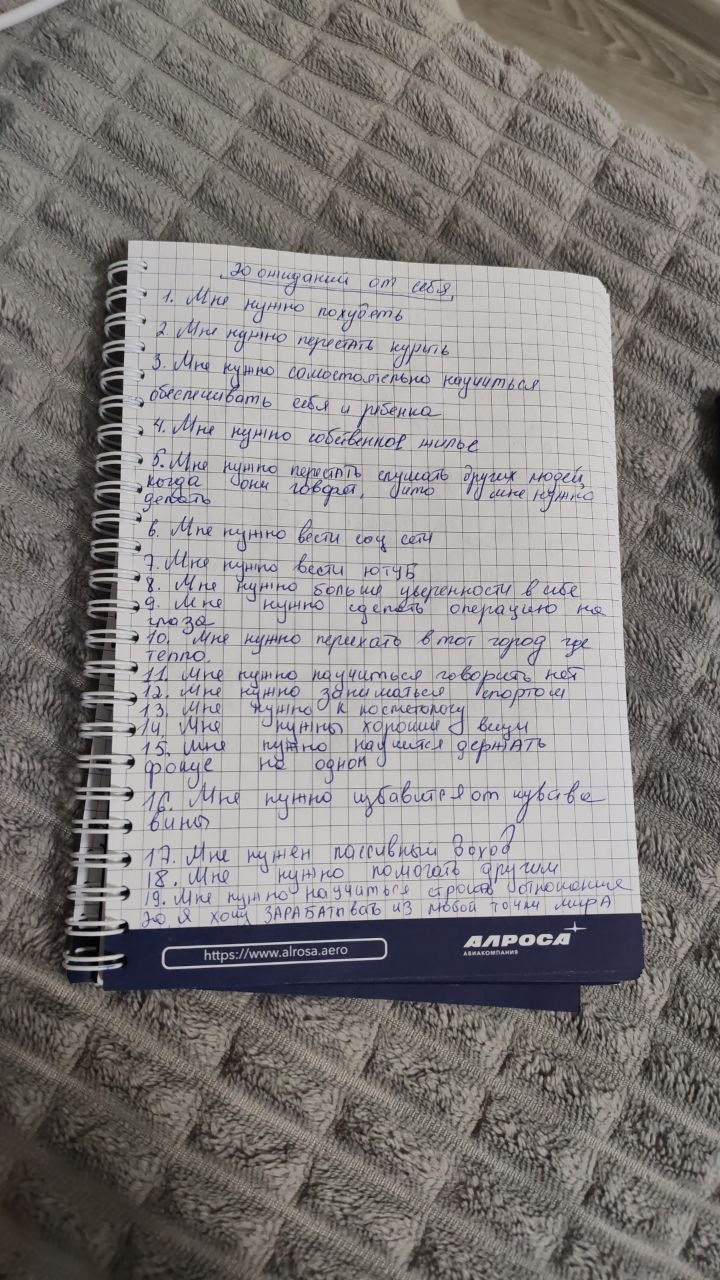 20 ожиданий от себя
1. Мне нужно похудеть
2. Мне нужно перестать курить
3. Мне нужно самостоятельно научиться
обеспечивать себя и ребенка
4. Мне нужно собственное жилье
5. Мне нужно перестать слушать других людей,
когда они говорят, что мне нужно
делать
6. Мне нужно вести соц сети
7. Мне нужно вести ютуб
8. Мне нужно больше уверенности в себе
9. Мне нужно сделать операцию на
глаза
10. Мне нужно переехать в тот город где
тепло.
11. Мне нужно научиться говорить нет
12. Мне нужно заниматься спортом
13. Мне нужно к косметологу
14. Мне нужны хорошие вещи
15. Мне нужно научится держать
фокус на одном
16. Мне нужно избавится от чувства
вины
17. Мне нужен пассивный доход
18. Мне нужно помогать другим
19. Мне нужно научиться строить отношения
20. Я хочу ЗАРАБАТЫВАТЬ ИЗ любой точки мира
https://www.alrosa.aero
АЛРОСА
АВИАКОМПАНИЯ